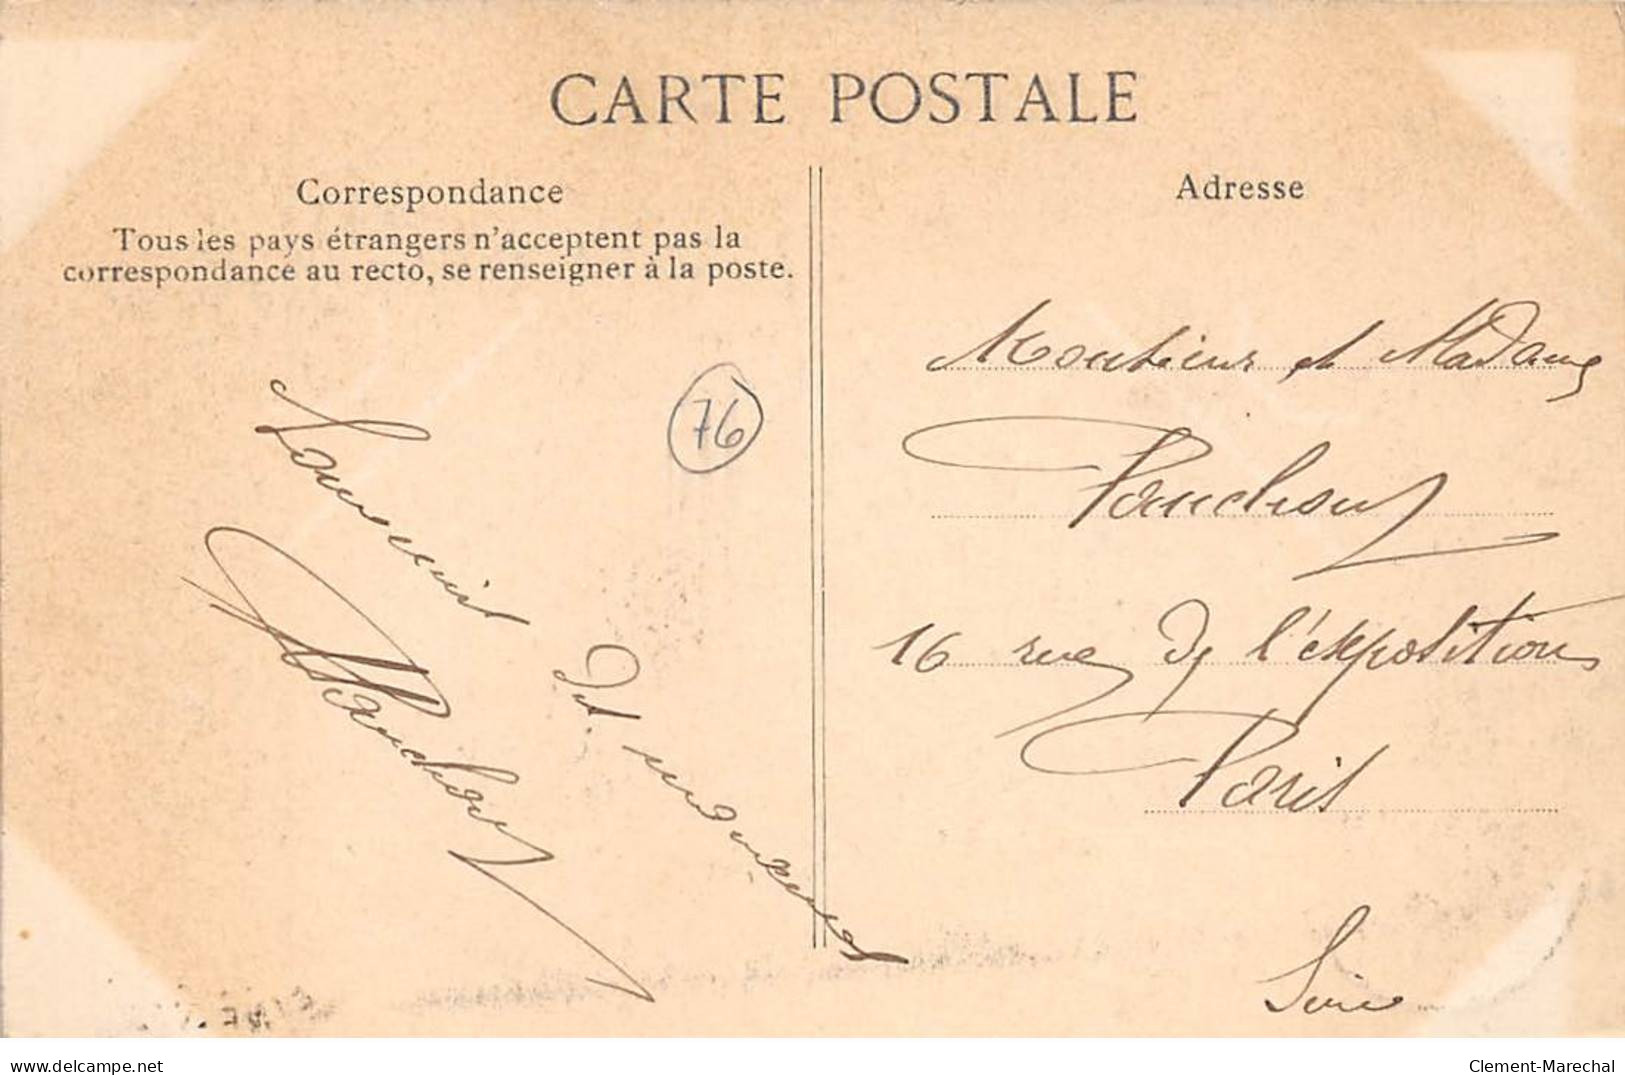 CARTE POSTALE
Correspondance
Tous les pays étrangers n'acceptent pas la
correspondance au recto, se renseigner à la poste.
Adresse
76
Souvenir
du
Monsieur et Madame
16 rue de l'exposition
Paris
Seine
delcampe.net
Clement-Marechal